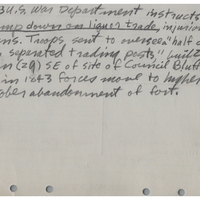 3 U.S. War Department instructs
mp down on liquor trade, injurious
ns. Troops sent to oversee "half a
separated trading posts" built
n (29) SE of site of Council Bluff
in 1843 forces move to higher
ober abandonment of fort.